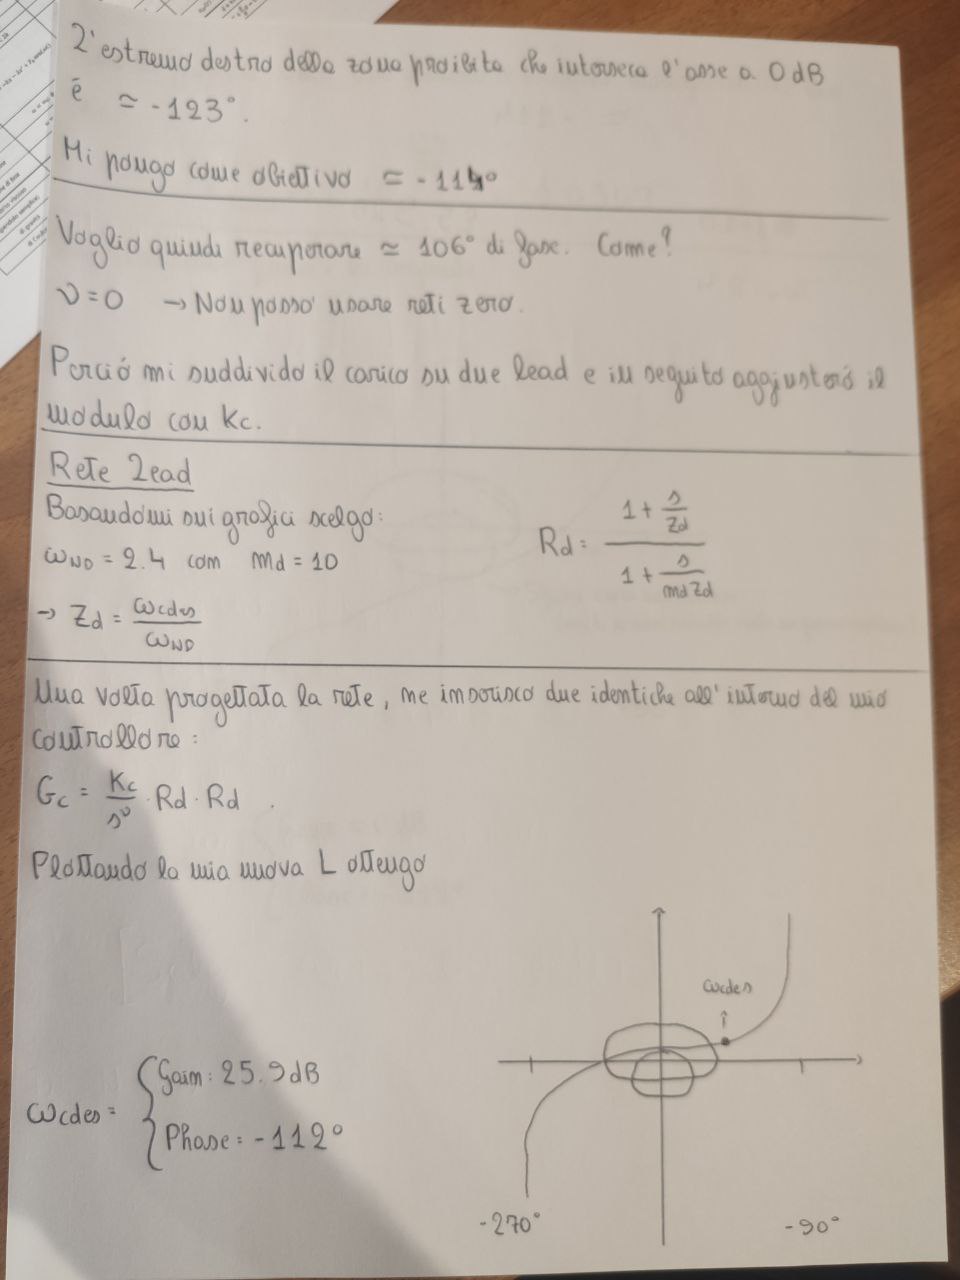 L'estremo destro della zona proibita che interseca l'asse a 0dB
è ≃ -123°.
Mi pongo come obiettivo ≃ -114°
Voglio quindi recuperare ≃ 106° di fase. Come?
ν=0 → Non posso usare reti zero.
Perció mi suddivido il carico su due lead e in seguito aggiusteró il
modulo con Kc.
Rete Lead
Basandomi sui grafici scelgo:
ωND = 2.4 com md = 10
Rd = (1 + s/Zd) / (1 + s/(md Zd))
→ Zd = ωcdes / ωND
Una volta progettata la rete, me inserisco due identiche all'interno del mio
controllore:
Gc = Kc/s^ν · Rd · Rd .
Plottando la mia nuova L ottengo
ωcdes
ωcdes = { Gain: 25.9dB
Phase = -112°
-270° -90°